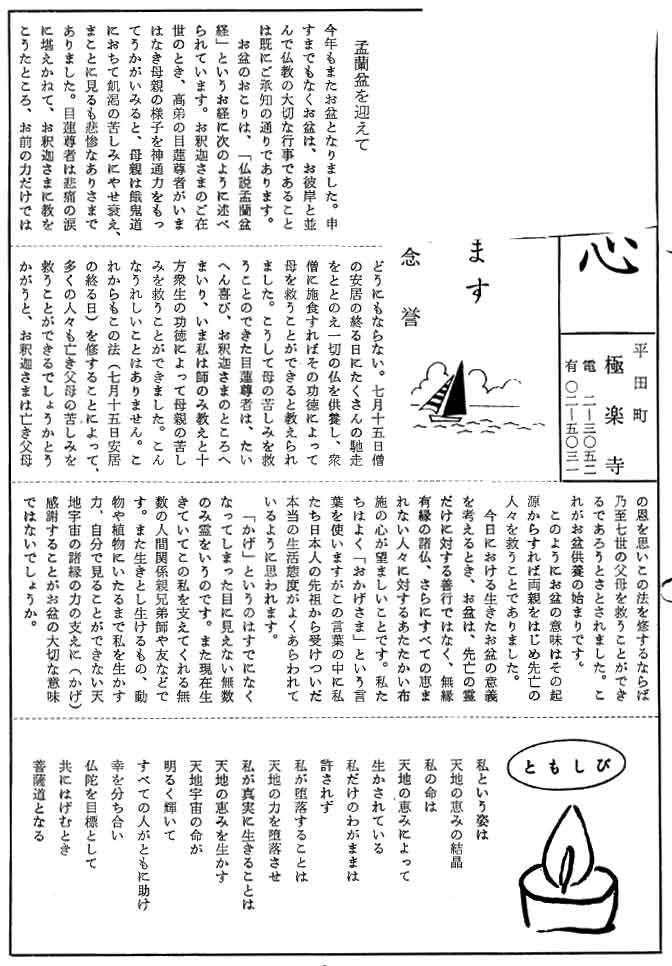 心
平田町
極楽寺
電 二―三〇五二
有 〇二―五〇三一
ます
念誉
盂蘭盆を迎えて
今年もまたお盆となりました。申
すまでもなくお盆は、お彼岸と並
んで仏教の大切な行事であること
は既にご承知の通りであります。
お盆のおこりは、「仏説盂蘭盆
経」というお経に次のように述べ
られています。お釈迦さまのご在
世のとき、高弟の目蓮尊者がいま
はなき母親の様子を神通力をもっ
てうかがいみると、母親は餓鬼道
におちて飢渇の苦しみにやせ衰え、
まことに見るも悲惨なありさまで
ありました。目蓮尊者は悲痛の涙
に堪えかねて、お釈迦さまに教を
こうたところ、お前の力だけでは
どうにもならない。七月十五日僧
の安居の終る日にたくさんの馳走
をととのえ一切の仏を供養し、衆
僧に施食すればその功徳によって
母を救うことができると教えられ
ました。こうして母の苦しみを救
うことのできた目蓮尊者は、たい
へん喜び、お釈迦さまのところへ
まいり、いま私は師のみ教えと十
方衆生の功徳によって母親の苦し
みを救うことができました。こん
なうれしいことはありません。こ
れからもこの法(七月十五日安居
の終る日)を修することによって、
多くの人々も亡き父母の苦しみを
救うことができるでしょうかとう
かがうと、お釈迦さまは亡き父母
の恩を思いこの法を修するならば
乃至七世の父母を救うことができ
るであろうとさとされました。こ
れがお盆供養の始まりです。
このようにお盆の意味はその起
源からすれば両親をはじめ先亡の
人々を救うことでありました。
今日における生きたお盆の意義
を考えるとき、お盆は、先亡の霊
だけに対する善行ではなく、無縁
有縁の諸仏、さらにすべての恵ま
れない人々に対するあたたかい布
施の心が望ましいことです。私た
ちはよく「おかげさま」という言
葉を使いますがこの言葉の中に私
たち日本人の先祖から受けついだ
本当の生活態度がよくあらわれて
いるように思われます。
「かげ」というのはすでになく
なってしまった目に見えない無数
のみ霊をいうのです。また現在生
きていてこの私を支えてくれる無
数の人間関係親兄弟師や友などで
す。また生きとし生けるもの、動
物や植物にいたるまで私を生かす
力、自分で見ることができない天
地宇宙の諸縁の力の支えに(かげ)
感謝することがお盆の大切な意味
ではないでしょうか。
ともしび
私という姿は
天地の恵みの結晶
私の命は
天地の恵みによって
生かされている
私だけのわがままは
許されず
私が堕落することは
天地の力を堕落させ
私が真実に生きることは
天地の恵みを生かす
天地宇宙の命が
明るく輝いて
すべての人がともに助け
幸を分ち合い
仏陀を目標として
共にはげむとき
菩薩道となる